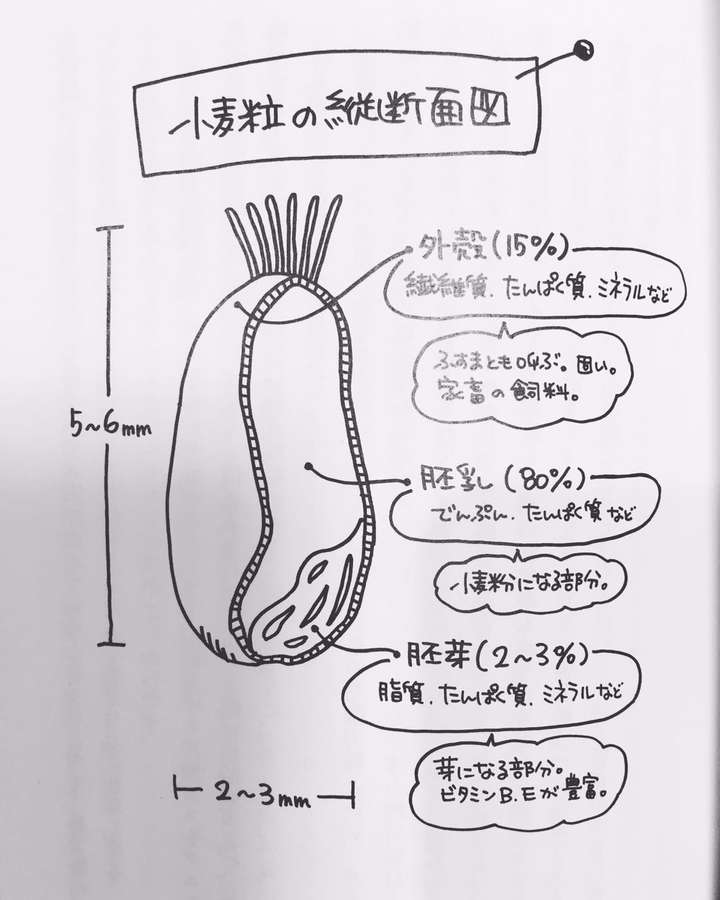 小麦粒の縦断面図
外殻(15%)
繊維質、たんぱく質、ミネラルなど
ふすまとも呼ぶ。固い。
家畜の飼料。
5~6mm
胚乳(80%)
でんぷん、たんぱく質など
小麦粉になる部分。
胚芽(2~3%)
脂質、たんぱく質、ミネラルなど
芽になる部分。
ビタミンB、Eが豊富。
2~3mm